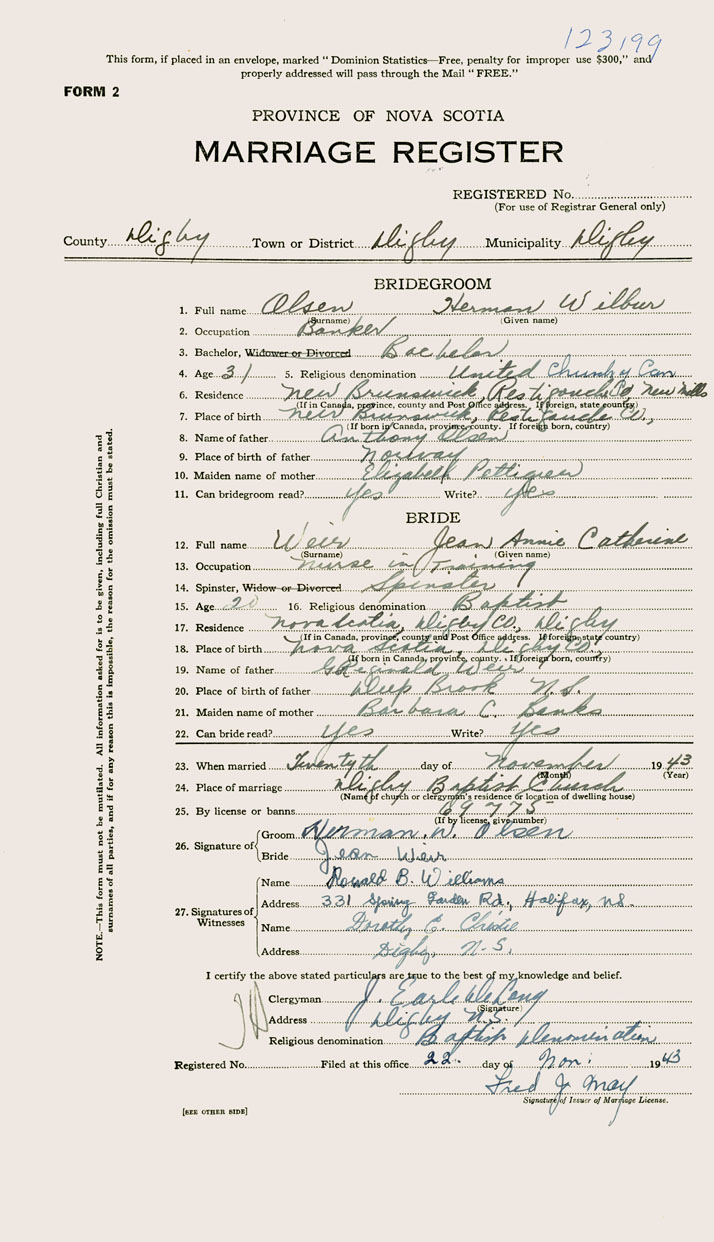 123199
This form, if placed in an envelope, marked "Dominion Statistics—Free, penalty for improper use $300," and
properly addressed will pass through the Mail "FREE."
FORM 2
PROVINCE OF NOVA SCOTIA
MARRIAGE REGISTER
REGISTERED No.
(For use of Registrar General only)
County Digby Town or District Digby Municipality Digby
BRIDEGROOM
1. Full name Olsen Herman Wilbur
(Surname) (Given name)
2. Occupation Banker
3. Bachelor, Widower or Divorced Bachelor
4. Age 31 5. Religious denomination United Church of Can
6. Residence New Brunswick, Restigouche Co, New Mills
(If in Canada, province, county and Post Office address. If foreign, state country)
7. Place of birth New Brunswick, Restigouche Co.,
(If born in Canada, province, county. If foreign born, country)
8. Name of father Anthony Olsen
9. Place of birth of father Norway
10. Maiden name of mother Elizabeth Pettigrew
11. Can bridegroom read? Yes Write? Yes
BRIDE
12. Full name Weir Jean Annie Catherine
(Surname) (Given name)
13. Occupation Nurse in Training
14. Spinster, Widow or Divorced Spinster
15. Age 20 16. Religious denomination Baptist
17. Residence Nova Scotia, Digby Co, Digby
(If in Canada, province, county and Post Office address. If foreign, state country)
18. Place of birth Nova Scotia, Digby Co,
(If born in Canada, province, county. If foreign born, country)
19. Name of father G Reginald Weir
20. Place of birth of father Deep Brook N.S.
21. Maiden name of mother Barbara C. Banks
22. Can bride read? Yes Write? Yes
23. When married Twentyth day of November 1943
(Month) (Year)
24. Place of marriage Digby Baptist Church
(Name of church or clergyman's residence or location of dwelling house)
25. By license or banns 69775
(If by license, give number)
26. Signature of Groom Herman. W. Olsen
Bride Jean Weir
27. Signatures of Witnesses
Name Ronald B. Williams
Address 331 Spring Garden Rd., Halifax, NS.
Name Dorothy E. Christie
Address Digby, N.S.
I certify the above stated particulars are true to the best of my knowledge and belief.
Clergyman J. Earle DeLong
(Signature)
Address Digby N.S.
Religious denomination Baptist Denomination
Registered No. Filed at this office 22. day of Nov. 1943
Fred J. May
Signature of Issuer of Marriage License.
[SEE OTHER SIDE]
NOTE.—This form must not be mutilated. All information asked for is to be given, including full Christian and
surnames of all parties, and if for any reason this is impossible, the reason for the omission must be stated.